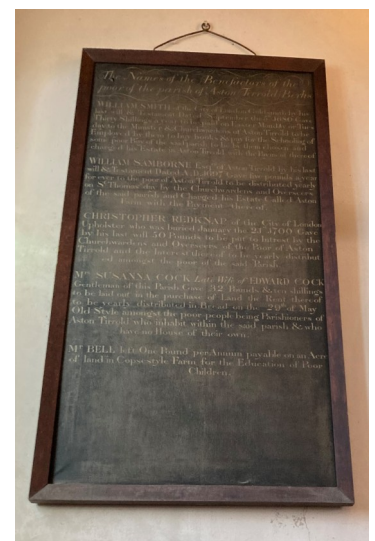 The Names of the Benefactors of the
poor of the parish of Aston Tirrold Berks
WILLIAM SMITH of the
last will &
Thirty Shillings
to the Minister & Churchwardens of Aston Tirrold to be
Employed by them
some poor Boys of the said parish
WILLIAM SAMBORNE Esq. of Aston Tirrold by his last
will & Testament Dated A.D. Gave Two pounds a year
for ever to the poor of Aston Tirrold to be distributed yearly
on St Thomas's day by the Churchwardens and Overseers
of the said parish and Charged his Estate Called Aston
Farm with the Payment thereof
CHRISTOPHER REDKNAP of the City of London
Upholster who was buried January the 23 1700 Gave
by his last will 50 Pounds to be put to Intrest by the
Churchwardens and Overseers of the Poor of Aston
Tirrold and the Intrest thereof to be yearly distribut
ed amongst the poor of the said Parish
Mrs SUSANNA COCK Late Wife of EDWARD COCK
Gentleman of this Parish Gave 32 Pounds & ten shillings
to be laid out in the purchase of Land the Rent thereof
to be yearly distributed in Bread on the 29th of May
Old Style amongst the poor people being Parishioners of
Aston Tirrold who inhabit within the said parish & who
have no House of their own.
Mr BELL left One Pound per Annum payable on an Acre
of land in Copsestyle Farm for the Education of Poor
Children.